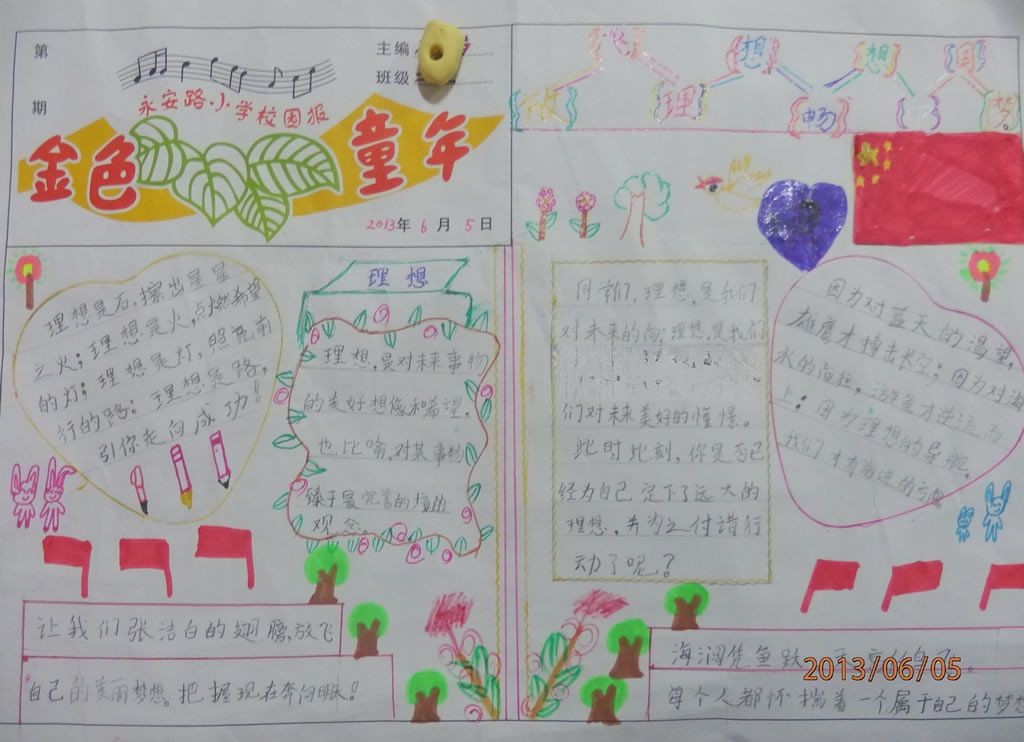 第
期
主编
班级
永安路小学校园报
金色童年
2013年 6月 5日
理
想
畅
想
国
梦。
理想是石，擦出星星
之火；理想是火，点燃希望
的灯；理想是灯，照亮前
行的路；理想是路，
引你走向成功！
理想
理想，是对未来事物
的美好想像和希望。
也比喻，对某事物
臻于最完善的境的
观念。
同学们，理想，是我们
对未来的向；理想，是我们
们对未来美好的憧憬。
此时此刻，你是否已
经为自己定下了远大的
理想，并为之付诸行
动了呢？
因为对蓝天的渴望，
雄鹰才搏击长空；因为对海
水的
上；因为理想的导航，
我们才有前进的方
让我们张洁白的翅膀，放飞
自己的美丽梦想。把握现在奔向
海阔凭鱼跃
每个人都怀揣着一个属于自己的梦想
2013/06/05